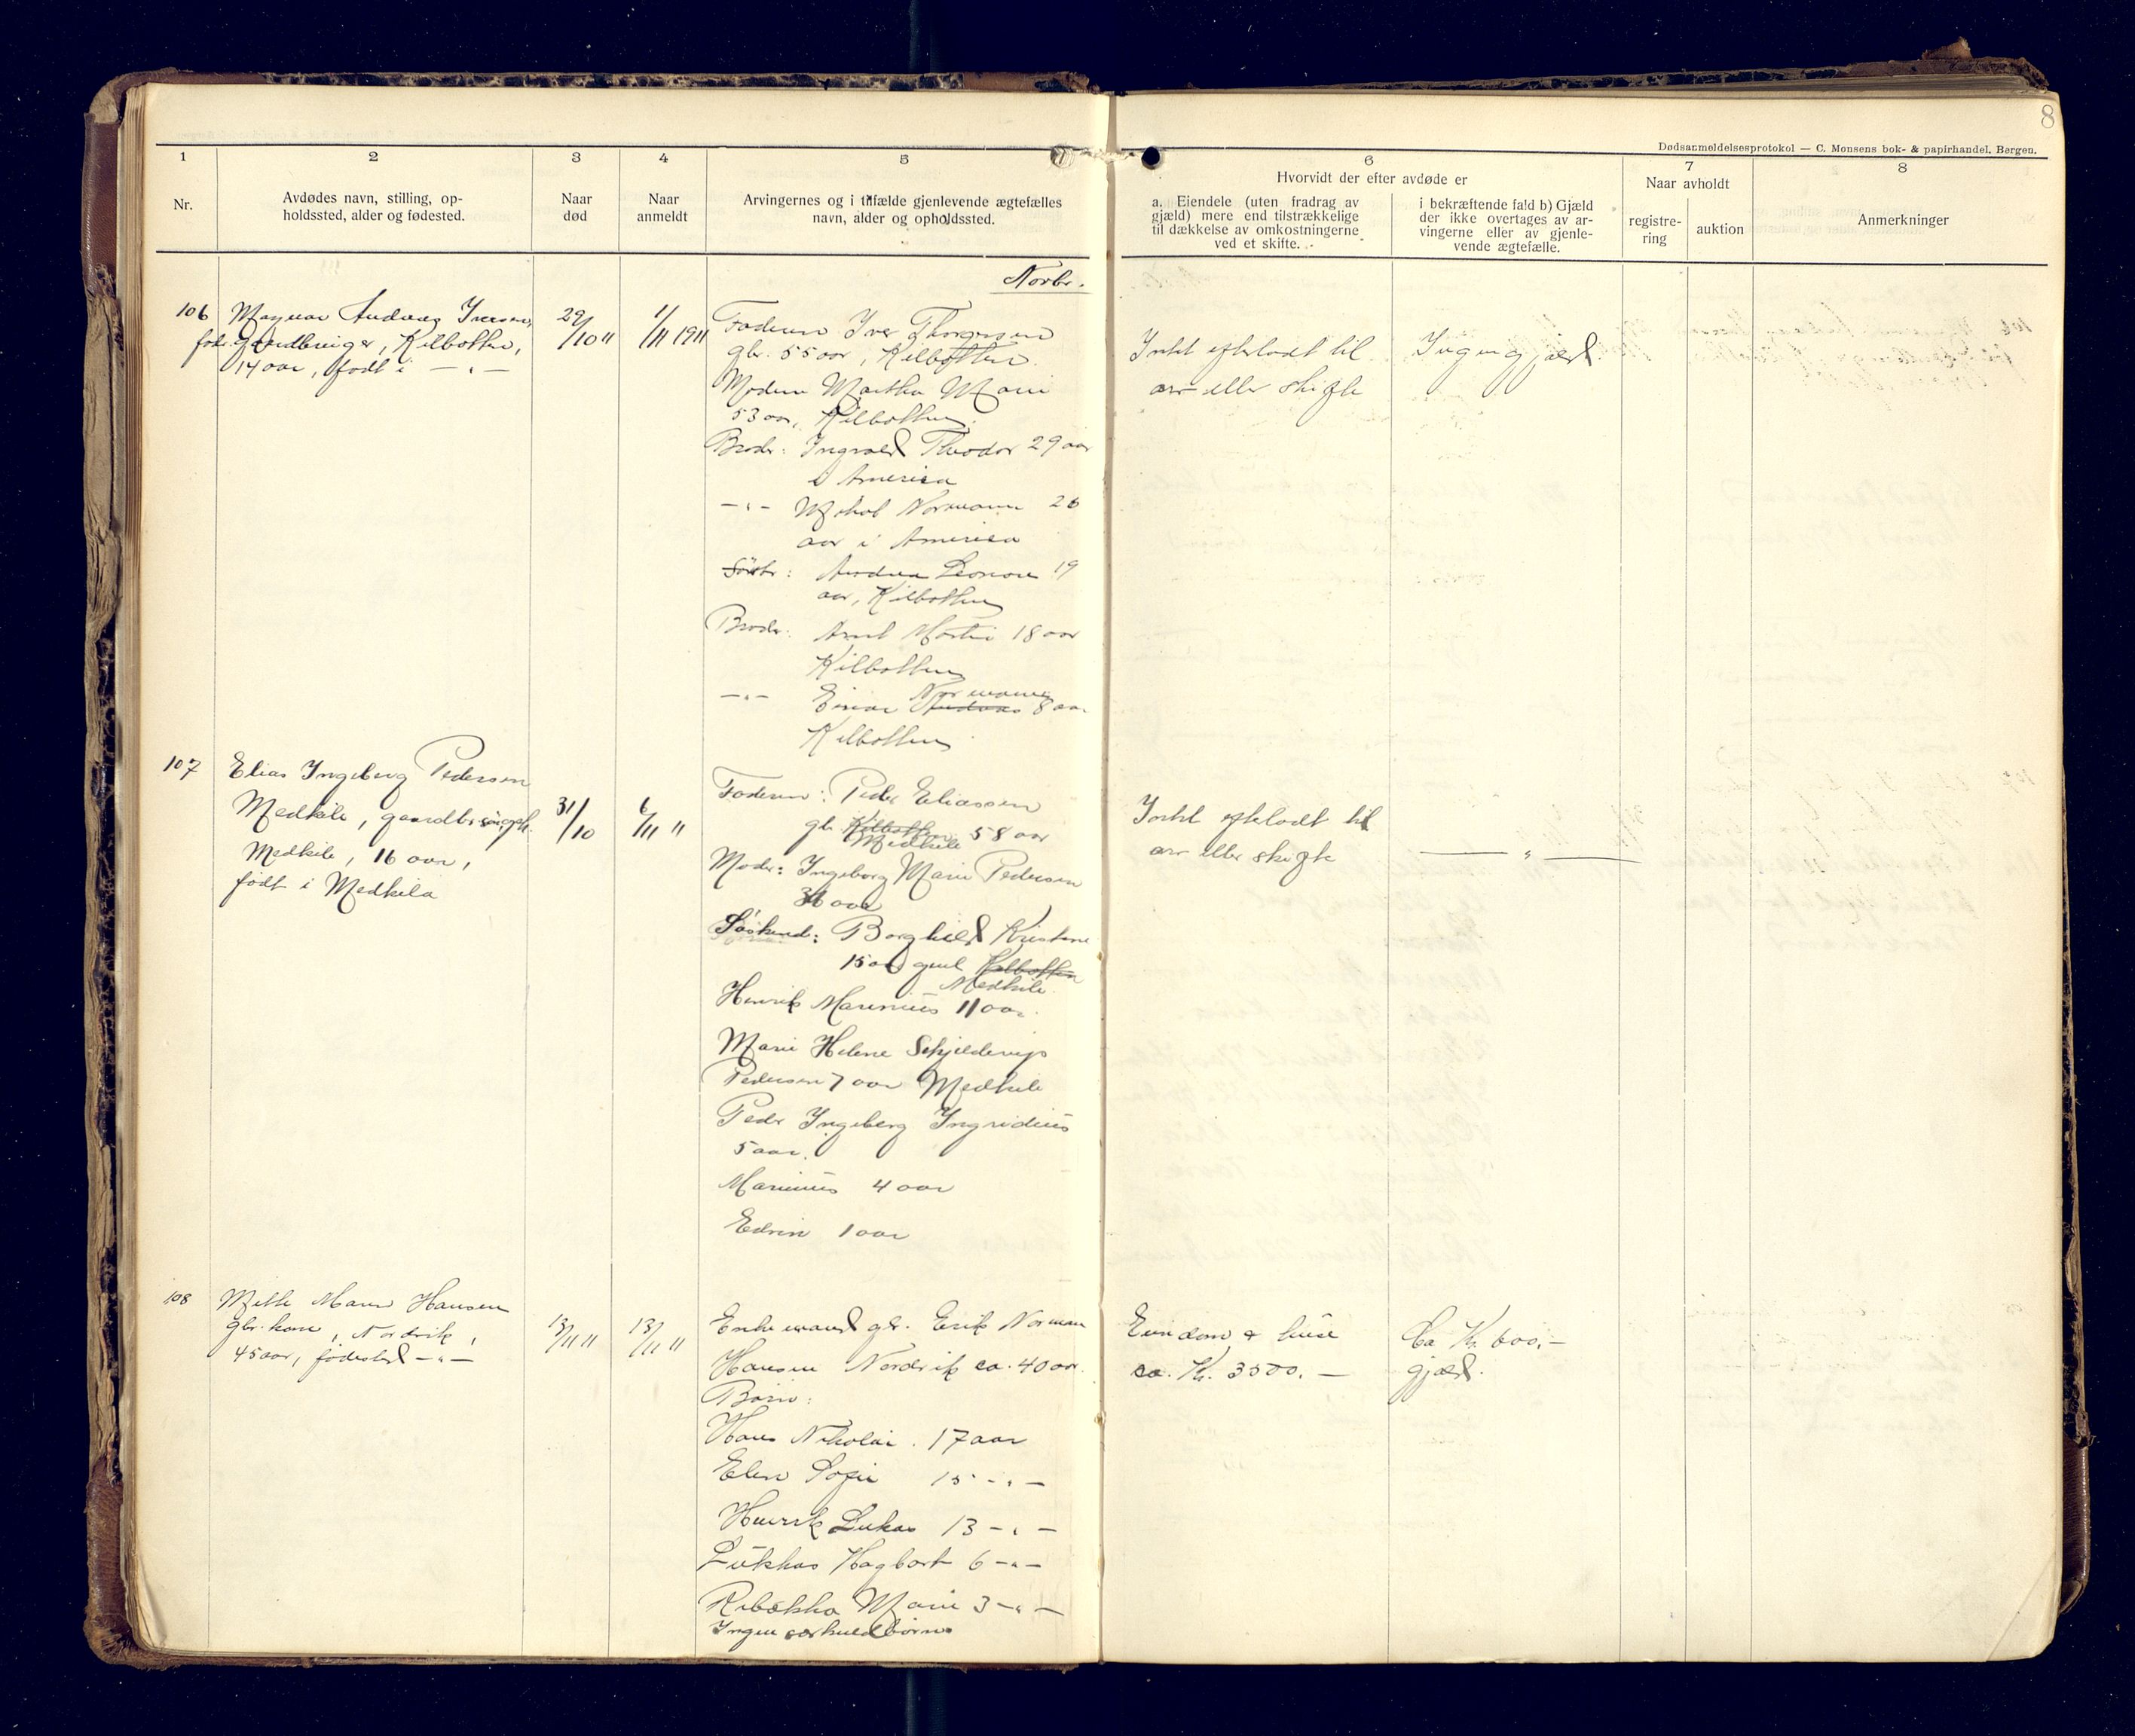 8
Dødsanmeldelsesprotokol — C. Monsens bok- & papirhandel, Bergen.
1
Nr.
2
Avdødes navn, stilling, op-
holdssted, alder og fødested.
3
Naar
død
4
Naar
anmeldt
5
Arvingernes og i tilfælde gjenlevende ægtefælles
navn, alder og opholdssted.
6
Hvorvidt der efter avdøde er
a. Eiendele (uten fradrag av
gjæld) mere end tilstrækkelige
til dækkelse av omkostningerne
ved et skifte.
i bekræftende fald b) Gjæld
der ikke overtages av ar-
vingerne eller av gjenle-
vende ægtefælle.
7
Naar avholdt
registre-
ring
auktion
8
Anmerkninger
Novbr.
106
Magnar Andreas Iversen,
gaardbruger, Kilbotten,
14 aar, født i — " —
29/10 "
1/11 1911
Faderen Iver Thorgersen
gbr. 55 aar, Kilbotten
Moderen Martha Marie
53 aar, Kilbotten.
Broder: Ingvald Theodor 29 aar
i America
— " — Mikal Normann 26
aar i America
Søster: Andrea Leonore 19
aar, Kilbotten
Broder: Arnt Martin 18 aar
Kilbotten
— " — Einar Normann 8 aar
Kilbotten
Intet efterladt til
arv eller skifte
Ingen gjæld
107
Elias Ingeberg Pedersen
Medkile, gaardbr.
Medkile, 16 aar,
født i Medkila
31/10
6/11 "
Faderen: Peder Eliassen
gbr. Kilbotten 58 aar
Medkile
Moder: Ingeborg Marie Pedersen
aar
Søskend: Borghild Kristine
15 aar Kilbotten
Medkile
Henrik Marinius 11 aar.
Marie Helene Schjelderup
Pedersen 7 aar Medkile
Peder Ingeberg Ingridius
5 aar.
Marinius 4 aar
Edvin 1 aar
Intet efterladt til
arv eller skifte
— " —
108
Mette Marie Hansen
gbr. kone, Nordvik,
45 aar, fødested — " —
13/11 "
13/11 "
Enkemand gbr. Erik Norman
Hansen Nordvik ca. 40 aar.
Børn:
Hans Nikolai. 17 aar
Elen Sofie 15 — " —
Henrik Lukas 13 — " —
Lukkas Hagbart 6 — " —
Rebekka Marie 3 — " —
Ingen særkuldbørn
Eiendom & huse
ca. Kr. 3500. —
Ca Kr. 600. —
gjæld.